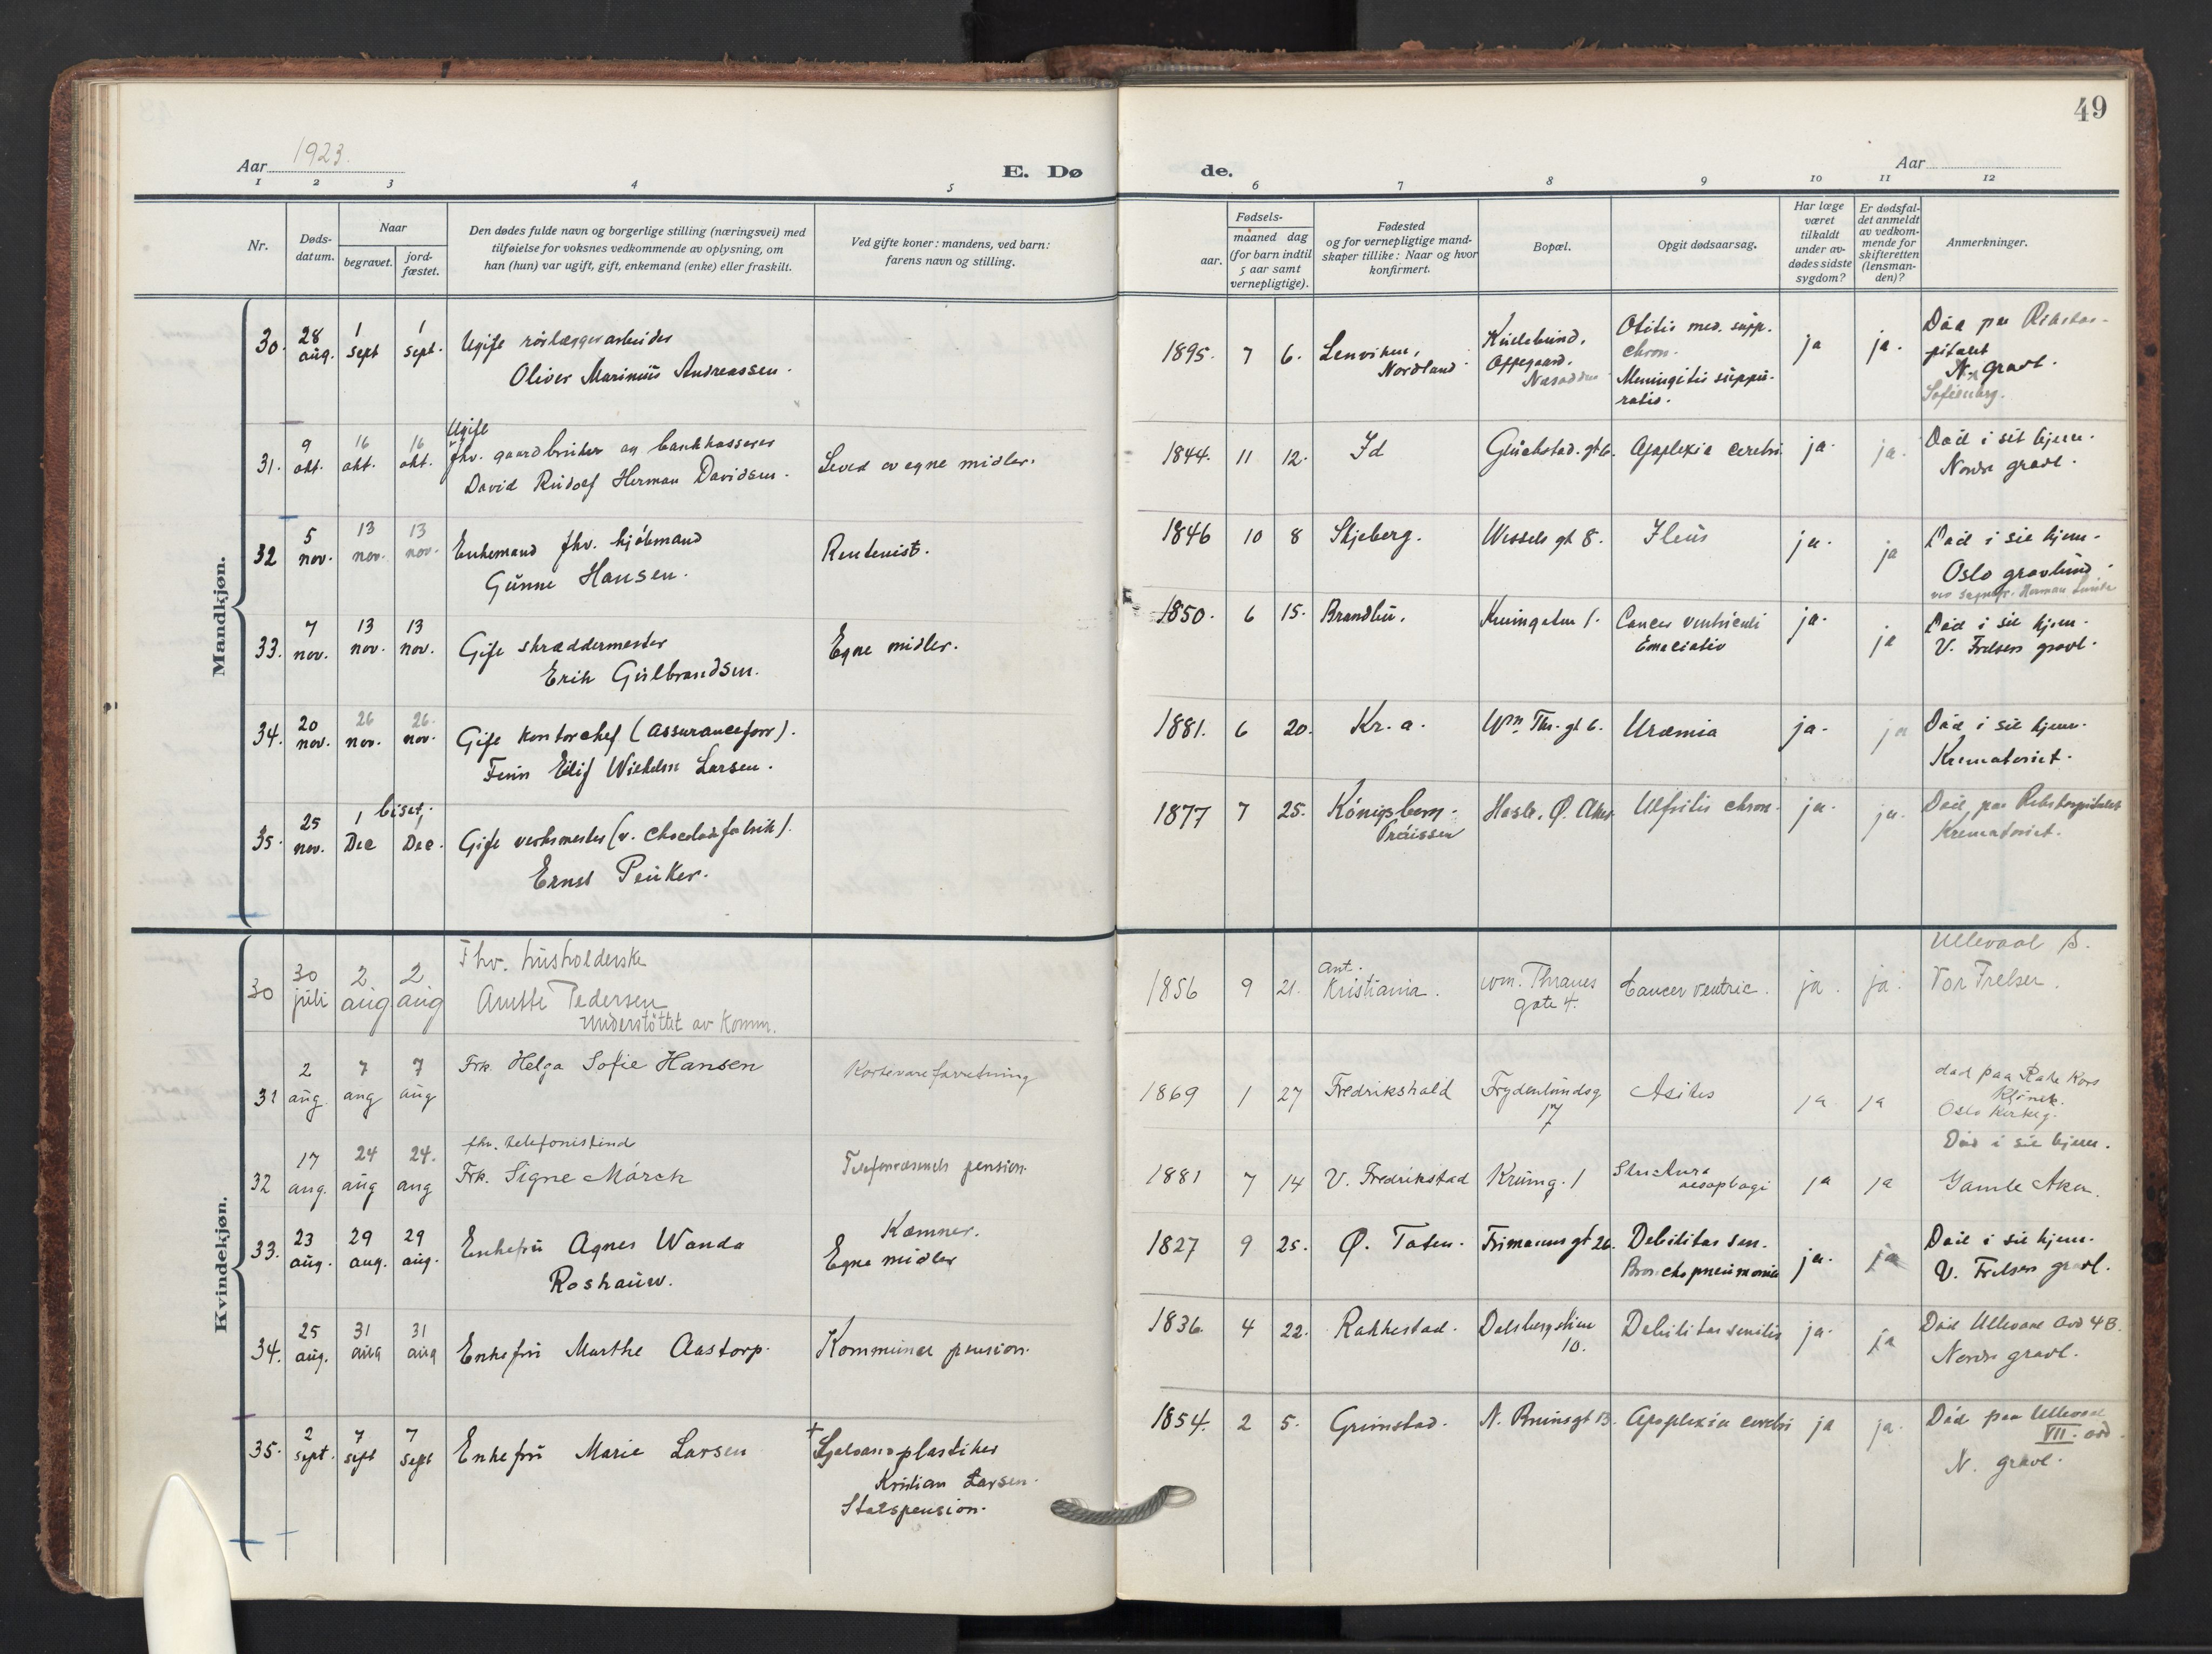 49
Aar 1923.
E. Dø de.
Aar
1 2 3 4 5 6 7 8 9 10 11 12
Nr.
Døds-
datum.
Naar
begravet.
jord-
fæstet.
Den dødes fulde navn og borgerlige stilling (næringsvei) med
tilføielse for voksnes vedkommende av oplysning, om
han (hun) var ugift, gift, enkemand (enke) eller fraskilt.
Ved gifte koner: mandens, ved barn:
farens navn og stilling.
Fødsels-
aar.
maaned dag
(for barn indtil
5 aar samt
vernepligtige).
Fødested
og for vernepligtige mand-
skaper tillike: Naar og hvor
konfirmert.
Bopæl.
Opgit dødsaarsag.
Har læge
været
tilkaldt
under av-
dødes sidste
sygdom?
Er dødsfal-
det anmeldt
av vedkom-
mende for
skifteretten
(lensman-
den)?
Anmerkninger.
Mandkjøn.
30. 28 aug. 1 sept 1 sept.
Ugift rörlæggerarbeider
Oliver Marinius Andreassen.
1895. 7 6. Lenviken, Nordland
Oppegaard.
Otitis med. supp.
chron.
Meningitis suppu-
ratis.
ja ja.
Död paa Rikshos-
pitalet
N. gravl.
Sofienberg.
31. 9 okt. 16 okt. 16 okt.
Ugift
fhv. gaardbruker og bankkasserer
David Rudolf Herman Davidsen.
Leved av egne midler.
1844. 11 12. Id
Glückstad. gt 6. Apoplexia cerebri ja. ja.
Död i sit hjem.
Nordre gravl.
32 5 nov. 13 nov. 13 nov.
Enkemand fhv. kjöbmand
Gunne Hansen.
Rentenist.
1846 10 8 Skjeberg. Wessels gt 8. Ileus ja. ja
Död i sit hjem.
Oslo gravlund
33. 7 nov. 13 nov. 13 nov.
Gift skræddermester
Erik Gulbrandsen.
Egne midler.
1850. 6 15. Brandbu. Krumgaten 1. Cancer ventriculi
Emaciatio
ja. ja
Död i sit hjem.
V. Frelsers gravl.
34. 20 nov. 26 nov. 26. nov.
Gift kontorchef (assuranceforr).
Finn Eilif Wilhelm Larsen.
1881. 6 20. Kr.a. Wm. Thr. gt 6. Uræmia ja. ja
Död i sit hjem.
Krematoriet.
35. 25 nov. 1 Dec biset, 1 Dec.
Gift verksmester (v. Chocoladefabrik).
Ernst Peuker.
1877 7 25. Königsberg.
Preüssen
Hasle, Ø. Aker. chron. ja. ja.
Död paa Rikshospitalet
Krematoriet.
Kvindekjøn.
30 30 juli 2 aug 2 aug
Fhv. husholderske
Anette Pedersen
understöttet av Komm.
1856 9 21. Ant.
Kristiania.
Wm. Thranes
gate 4.
Cancer ventric. ja. ja.
Ullevaal S.
Vor Frelser.
31 2 aug. 7 aug 7 aug
Frk. Helga Sofie Hansen
Kortevareforretning
1869 1 27 Fredrikshald Frydenlundsg
17
Asites ja ja
död paa Röde Kors
Klinik.
Oslo Kirkeg.
32 17 aug. 24 aug 24. aug
fhv. telefonistinde
Frk. Signe Mörch
Telefonvæsenets pension.
1881 7 14 V. Fredrikstad Krumg. 1 Strictura
oesophagi
ja ja
Död i sit hjem.
Gamle Aker.
33. 23 aug. 29 aug. 29 aug.
Enkefru Agnes Wanda
Roshauw.
Kæmner.
Egne midler
1827 9 25. Ø. Toten. Frimanns gt 26. Debilitas sen.
Bronchopneumonia
ja. ja
Död i sit hjem.
V. Frelsers gravl.
34. 25 aug. 31 aug 31 aug
Enkefru Marthe Aastorp.
Kommunal pension.
1836. 4 22. Rakkestad. Dalsbergstien
10.
Debilitas senilis ja. ja
Död Ullevaal avd 4B.
Nordre gravl.
35. 2 sept. 7 sept 7 sept
Enkefru Marie Larsen
† Galvanoplastiker
Kristian Larsen.
Statspension.
1854. 2 5. Grimstad. N. Bruunsgt 13. Apoplexia cerebri ja ja.
Död paa Ullevaal
VII. avd.
N. gravl.